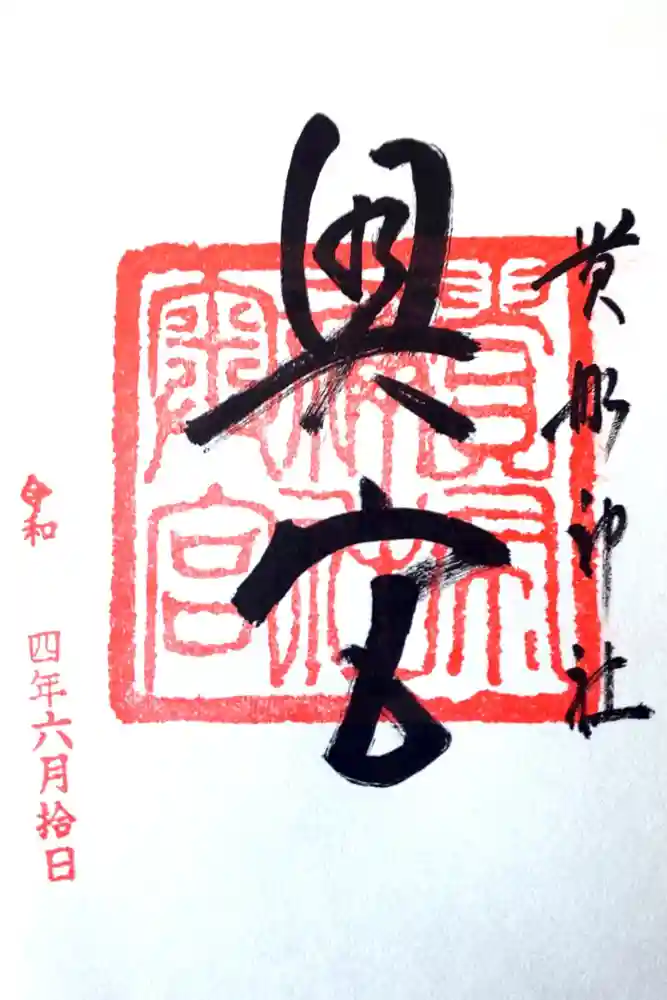 貴船神社
奥宮
令和 四年六月拾日